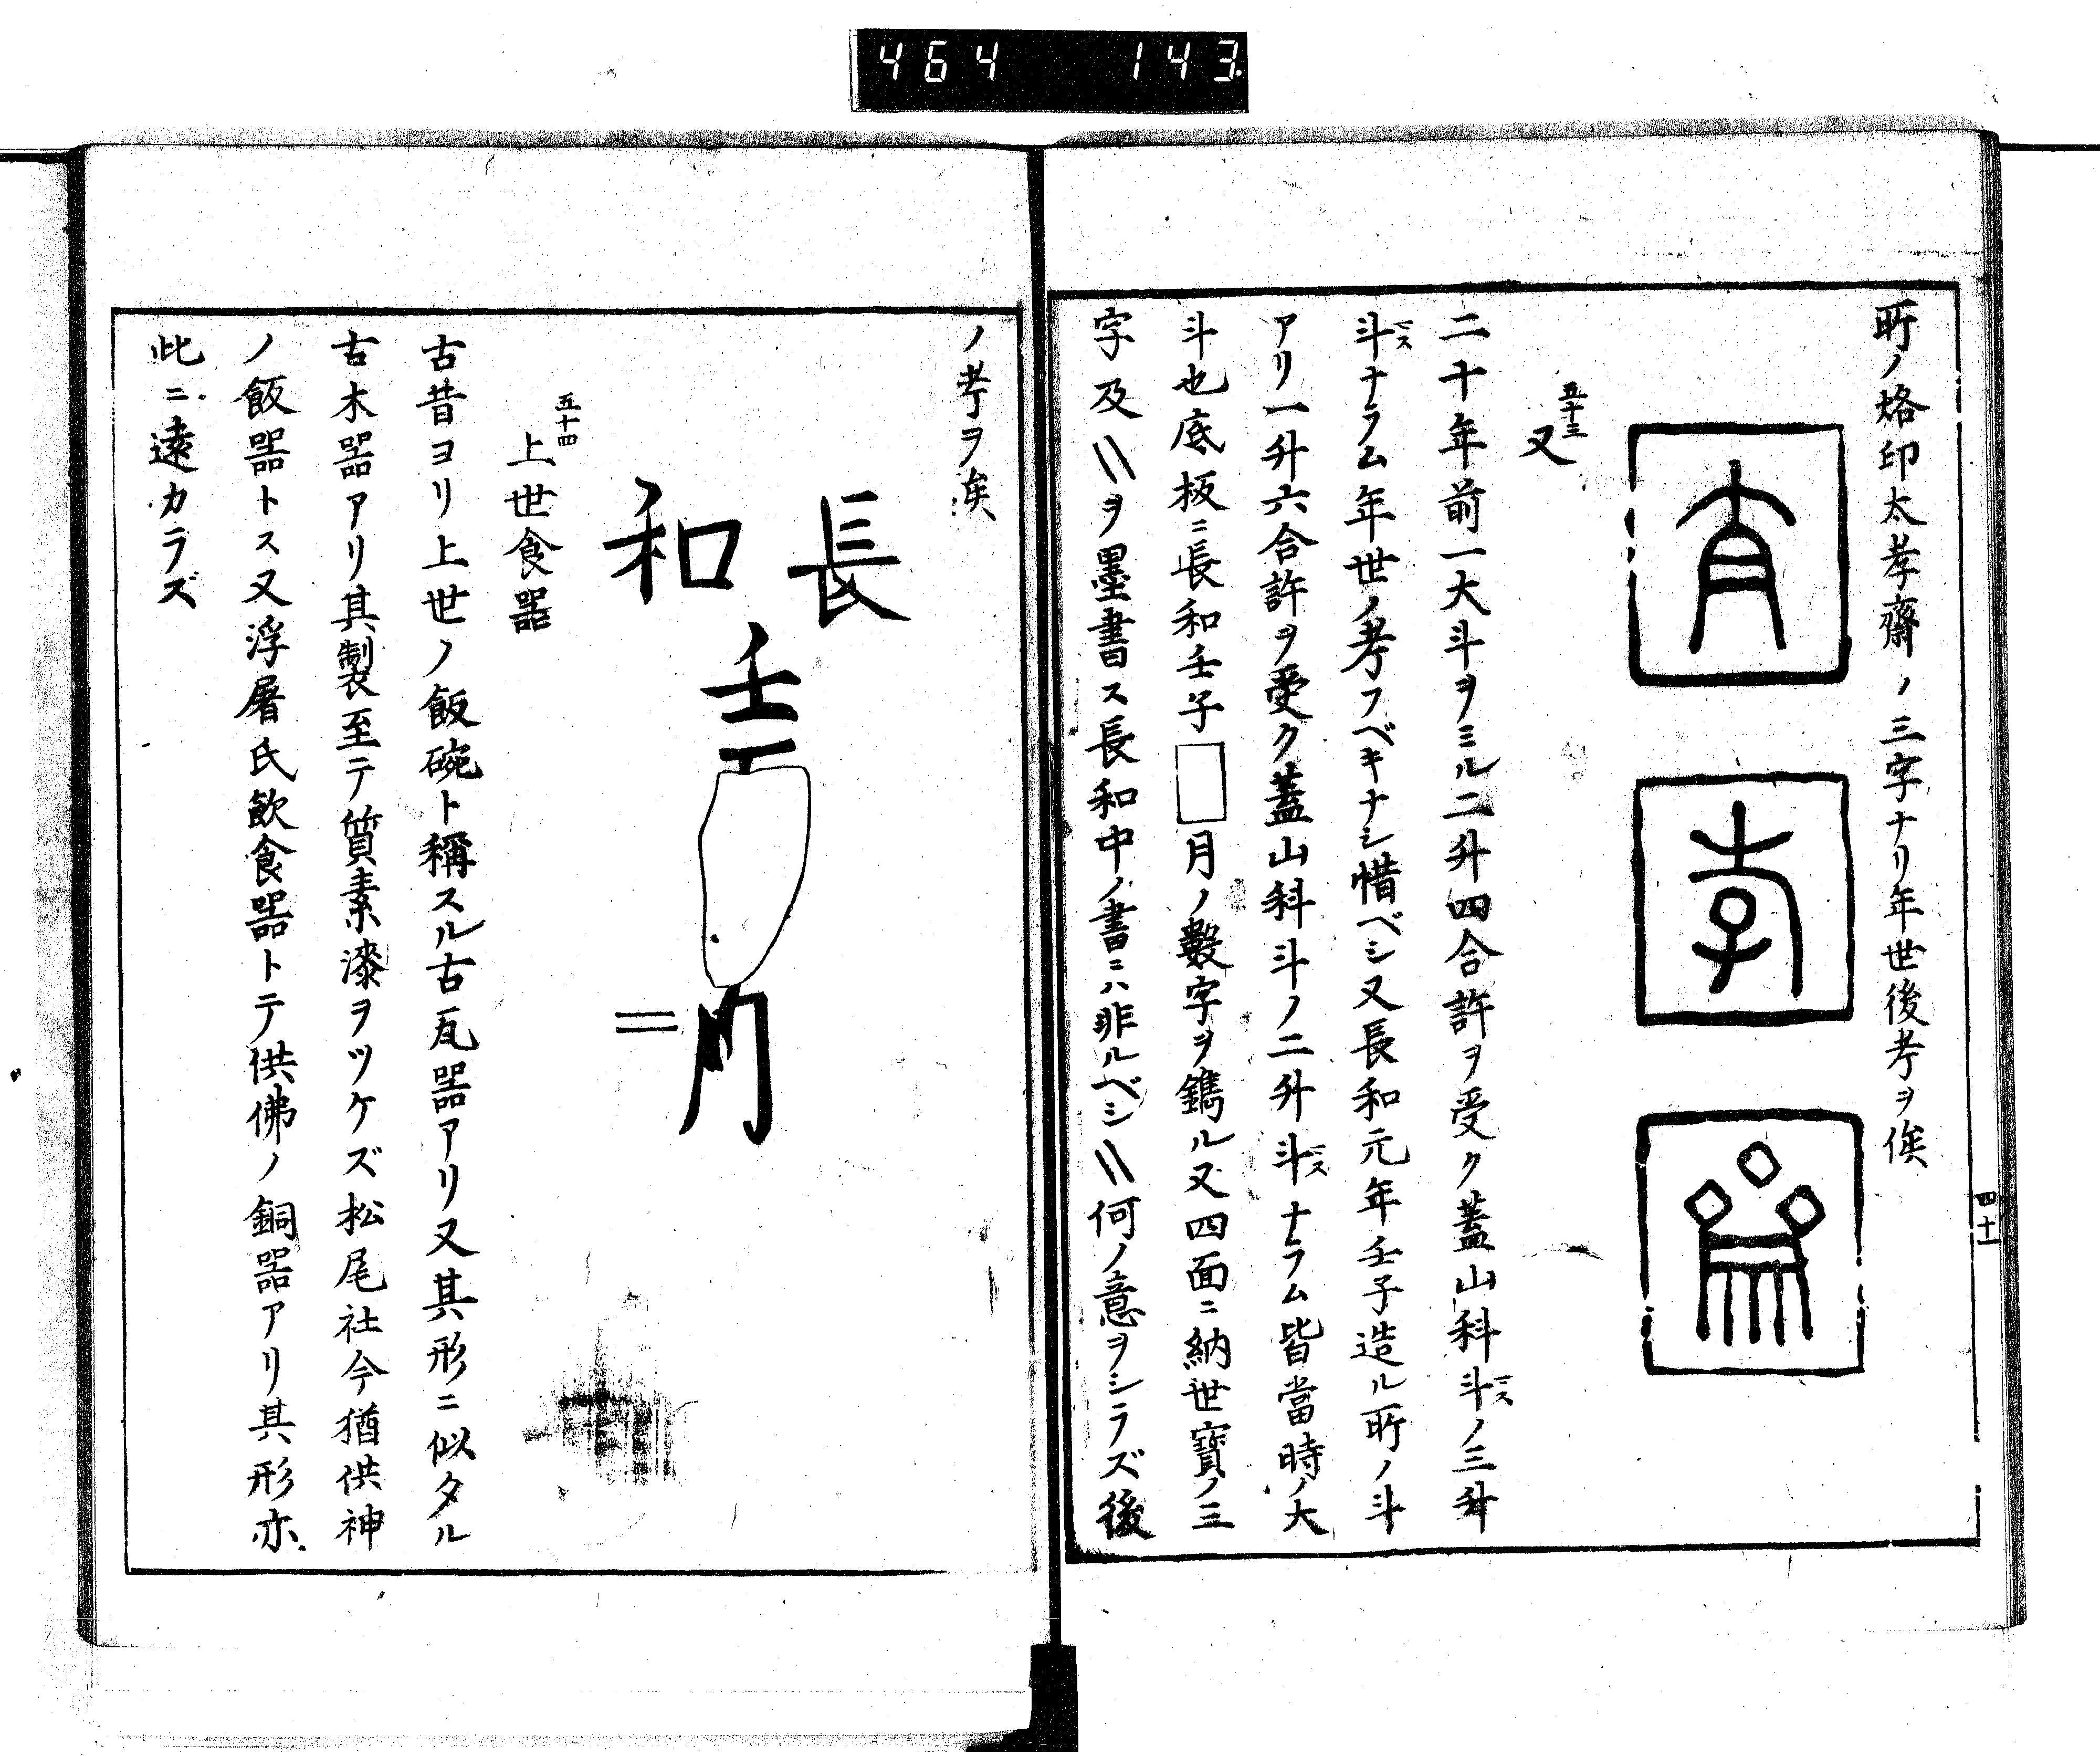 464 143
所ノ烙印太孝齋ノ三字ナリ年世後考ヲ俟
四十一
五十三
又
二十年前一大斗ヲミル二升四合許ヲ受ク蓋山科斗ノ三升
斗ナラム年世ノ考フベキナシ惜ベシ又長和元年壬子造ル所ノ斗
アリ一升六合許ヲ受ク蓋山科斗ノ二升斗ナラム皆當時ノ大
斗也底板ニ長和壬子□月ノ數字ヲ鐫ル又四面ニ納世寶ノ三
字及〵〵ヲ墨書ス長和中ノ書ニハ非ルベシ〵〵何ノ意ヲシラズ後
ノ考ヲ俟
長
和
壬
月
五十四
上世食器
古昔ヨリ上世ノ飯碗ト稱スル古瓦器アリ又其形ニ似タル
古木器アリ其製至テ質素漆ヲツケズ松尾社今猶供神
ノ飯器トス又浮屠氏飲食器トテ供佛ノ銅器アリ其形亦
此ニ遠カラズ